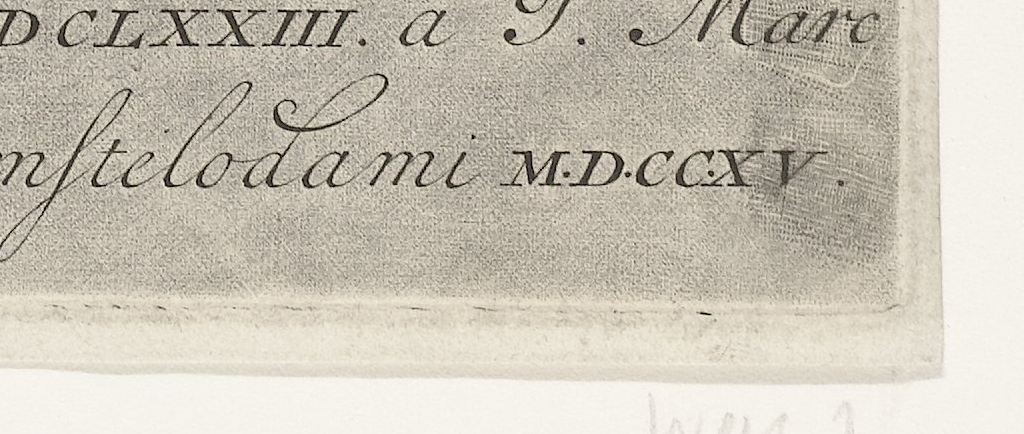 DCLXXIII. a J. Marc
mſtelodami M·D·CC·XV.